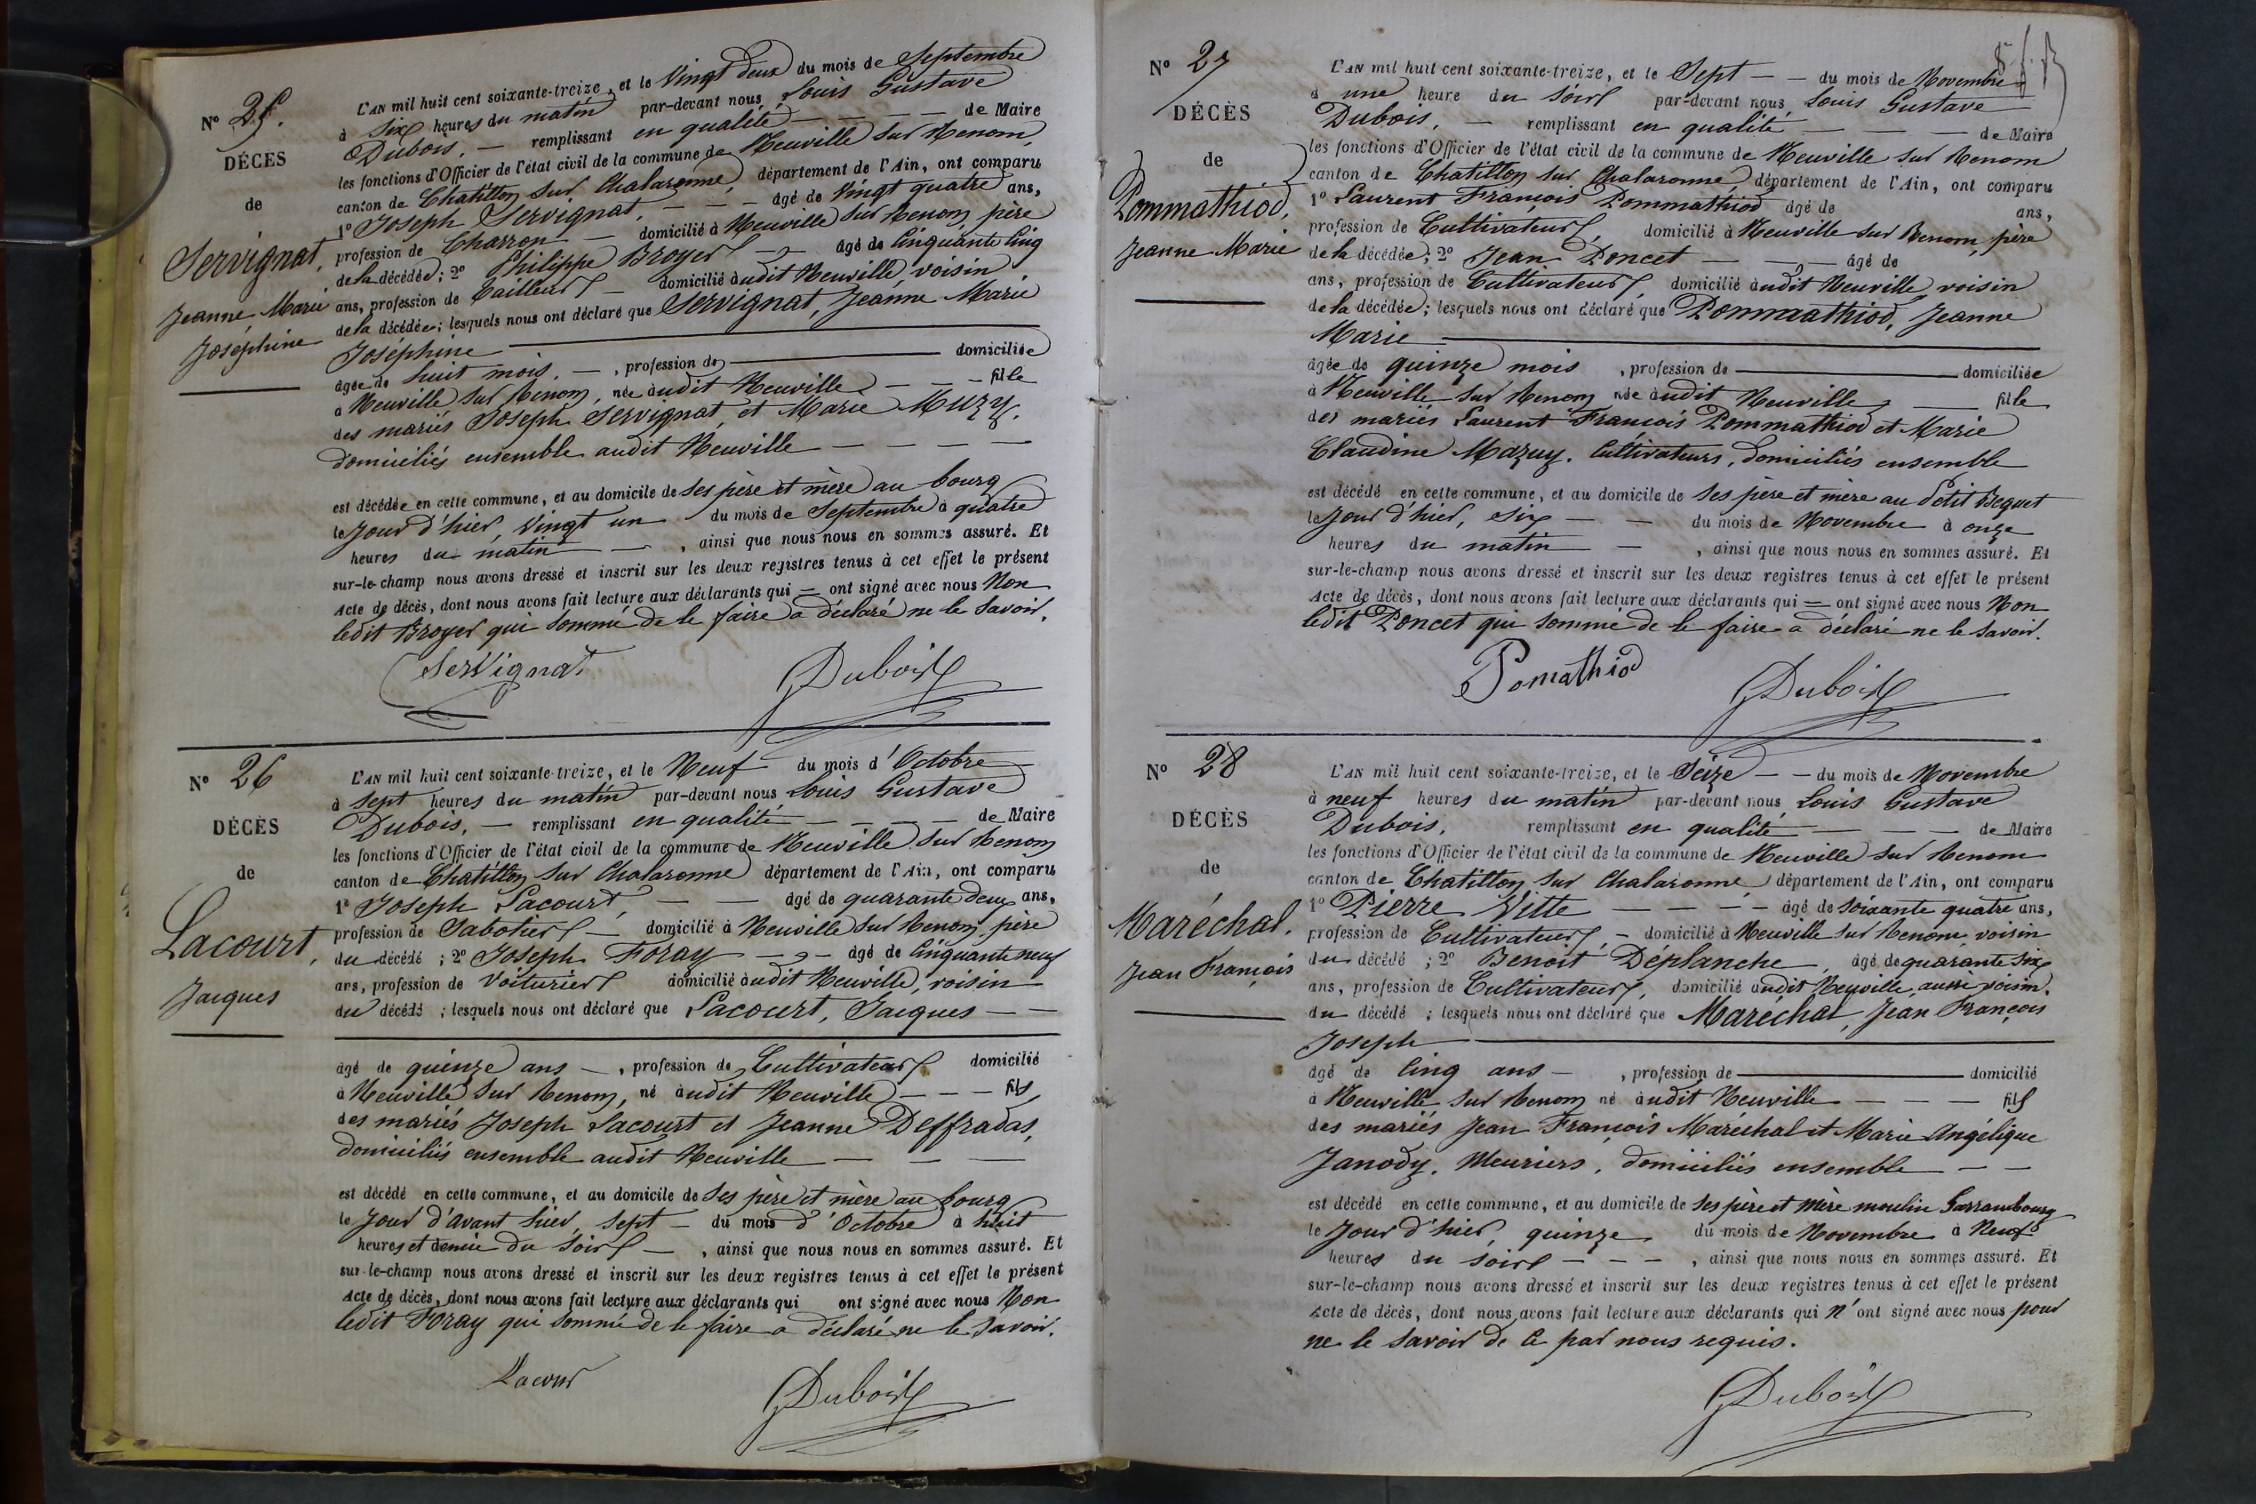 N° 25.
DÉCÈS
de
Servignat,
Jeanne Marie
Joséphine
L'AN mil huit cent soixante-treize, et le Vingt deux du mois de Septembre
à six heures du matin par-devant nous Louis Gustave
Dubois, — remplissant en qualité — — — — de Maire
les fonctions d'Officier de l'état civil de la commune de Neuville sur Renom,
canton de Chatillon sur Chalaronne, département de l'Ain, ont comparu
1° Joseph Servignat, — — — âgé de Vingt quatre ans,
profession de Charron — domicilié à Neuville sur Renom, père
de la décédée ; 2° Philippe Broyer — âgé de Cinquante Cinq
ans, profession de Tailleur — domicilié audit Neuville, voisin
de la décédée ; lesquels nous ont déclaré que Servignat, Jeanne Marie
Joséphine
âgée de huit mois. — , profession de — domiciliée
à Neuville sur Renom, née audit Neuville — — — fille
des mariés Joseph Servignat, et Marie Muzy,
domiciliés ensemble audit Neuville — — — —
est décédée en cette commune, et au domicile de ses père et mère au bourg
le Jour d'hier, Vingt un du mois de Septembre à quatre
heures du matin — , ainsi que nous nous en sommes assuré. Et
sur-le-champ nous avons dressé et inscrit sur les deux registres tenus à cet effet le présent
Acte de décès, dont nous avons fait lecture aux déclarants qui = ont signé avec nous Non
ledit Broyer qui sommé de le faire a déclaré ne le savoir.
Servignat Dubois
N° 26
DÉCÈS
de
Lacourt,
Jacques
L'AN mil huit cent soixante-treize, et le Neuf du mois d'Octobre
à sept heures du matin par-devant nous Louis Gustave
Dubois, — remplissant en qualité — — — — de Maire
les fonctions d'Officier de l'état civil de la commune de Neuville sur Renom
canton de Chatillon sur Chalaronne département de l'Ain, ont comparu
1° Joseph Lacourt, — — âgé de quarante deux ans,
profession de Sabotier — domicilié à Neuville sur Renom, père
du décédé ; 2° Joseph Foray — , — âgé de Cinquante neuf
ans, profession de Voiturier domicilié audit Neuville, voisin
du décédé ; lesquels nous ont déclaré que Lacourt, Jacques — —
âgé de quinze ans — , profession de Cultivateur domicilié
à Neuville sur Renom, né audit Neuville — — — fils
des mariés Joseph Lacourt et Jeanne Deffradas,
domiciliés ensemble audit Neuville — — —
est décédé en cette commune, et au domicile de ses père et mère au bourg
le Jour d'avant hier, sept — du mois d'Octobre à huit
heures et demie du soir — , ainsi que nous nous en sommes assuré. Et
sur-le-champ nous avons dressé et inscrit sur les deux registres tenus à cet effet le présent
Acte de décès, dont nous avons fait lecture aux déclarants qui ont signé avec nous Non
ledit Foray qui sommé de le faire a déclaré ne le savoir.
Lacour Dubois
N° 27
DÉCÈS
de
Pommathiod,
Jeanne Marie
L'AN mil huit cent soixante-treize, et le Sept — — du mois de Novembre
à une heure du soir par-devant nous Louis Gustave
Dubois, — remplissant en qualité — — — de Maire
les fonctions d'Officier de l'état civil de la commune de Neuville sur Renom
canton de Chatillon sur Chalaronne, département de l'Ain, ont comparu
1° Laurent François Pommathiod âgé de ans,
profession de Cultivateur, domicilié à Neuville sur Renom, père
de la décédée ; 2° Jean Poncet — , — âgé de
ans, profession de Cultivateur, domicilié audit Neuville voisin
de la décédée ; lesquels nous ont déclaré que Pommathiod, Jeanne
Marie
âgée de quinze mois , profession de — domiciliée
à Neuville sur Renom née audit Neuville — fille
des mariés Laurent François Pommathiod et Marie
Claudine Mazuy. Cultivateurs, domiciliés ensemble
est décédé en cette commune, et au domicile de ses père et mère au Petit Bequet
le Jour d'hier, six — — du mois de Novembre à onze
heures du matin — , ainsi que nous nous en sommes assuré. Et
sur-le-champ nous avons dressé et inscrit sur les deux registres tenus à cet effet le présent
Acte de décès, dont nous avons fait lecture aux déclarants qui = ont signé avec nous Non
ledit Poncet qui sommé de le faire a déclaré ne le savoir.
Pomathiod Dubois
N° 28
DÉCÈS
de
Maréchal,
Jean François
L'AN mil huit cent soixante-treize, et le Seize — — du mois de Novembre
à neuf heures du matin par-devant nous Louis Gustave
Dubois, remplissant en qualité — — — de Maire
les fonctions d'Officier de l'état civil de la commune de Neuville sur Renom
canton de Chatillon sur Chalaronne, département de l'Ain, ont comparu
1° Pierre Vitte — — — — âgé de soixante quatre ans,
profession de Cultivateur, — domicilié à Neuville sur Renom, voisin
du décédé ; 2° Benoit Déplanche, âgé de quarante six
ans, profession de Cultivateur, domicilié audit Neuville, aussi voisin,
du décédé ; lesquels nous ont déclaré que Maréchal, Jean François
Joseph
âgé de Cinq ans — , profession de — domicilié
à Neuville sur Renom né audit Neuville — — — fils
des mariés Jean François Maréchal et Marie Angélique
Janody, Meuniers, domiciliés ensemble — —
est décédé en cette commune, et au domicile de ses père et mère moulin Sarrambourg
le Jour d'hier, quinze, du mois de Novembre à Neuf
heures du soir — — — , ainsi que nous nous en sommes assuré. Et
sur-le-champ nous avons dressé et inscrit sur les deux registres tenus à cet effet le présent
Acte de décès, dont nous avons fait lecture aux déclarants qui n'ont signé avec nous pour
ne le savoir de ce par nous requis.
Dubois